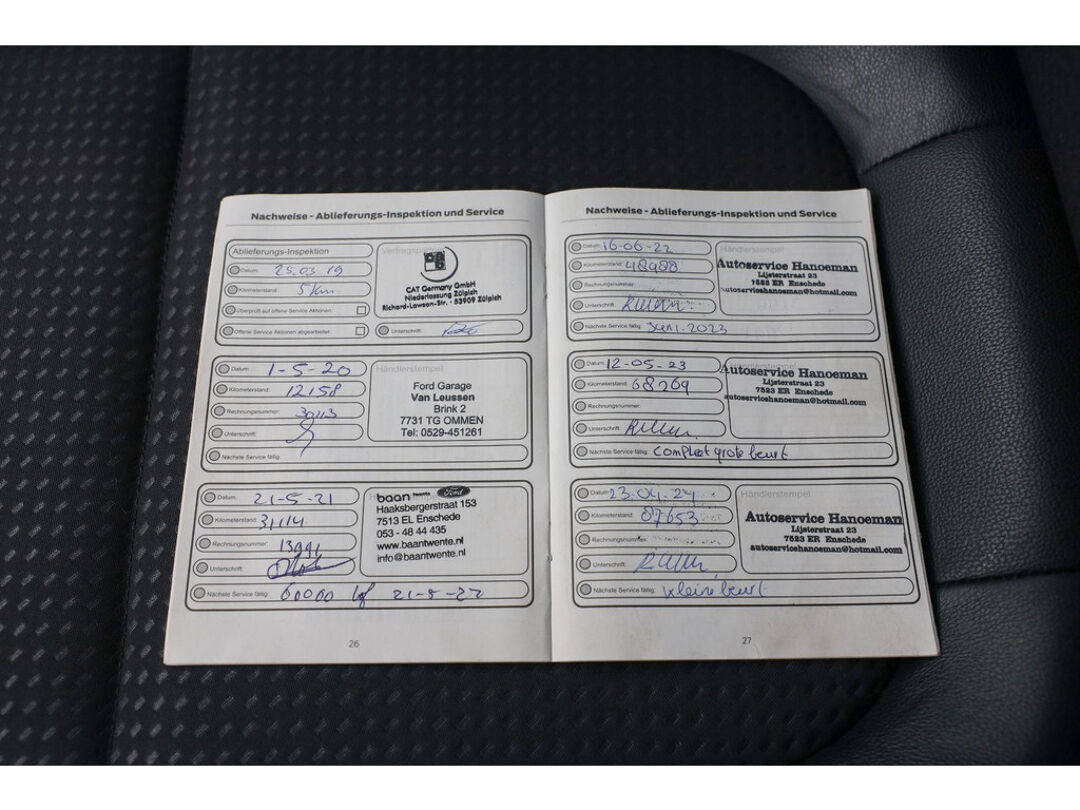 Nachweise - Ablieferungs-Inspektion und Service
Ablieferungs-Inspektion
Datum: 25.03.19
Kilometerstand: 5 km
Überprüft auf offene Service Aktionen:
Offene Service Aktionen abgearbeitet:
CAT Germany GmbH
Niederlassung Zülpich
Richard-Lawson-Str. · 53909 Zülpich
Unterschrift:
Datum: 1-5-20
Kilometerstand: 12158
Rechnungsnummer: 30113
Unterschrift:
Nächste Service fällig:
Händlerstempel
Ford Garage
Van Leussen
Brink 2
7731 TG OMMEN
Tel: 0529-451261
Datum: 21-5-21
Kilometerstand: 31114
Rechnungsnummer: 13991
Unterschrift:
Nächste Service fällig: 60000 of 21-5-22
baan twente Ford
Haaksbergerstraat 153
7513 EL Enschede
053 - 48 44 435
www.baantwente.nl
info@baantwente.nl
26
Nachweise - Ablieferungs-Inspektion und Service
Datum: 16-06-22
Kilometerstand: 48988
Rechnungsnummer:
Unterschrift:
Nächste Service fällig: Juni 2023
Händlerstempel
Autoservice Hanoeman
Lijsterstraat 23
7523 ER Enschede
autoservicehanoeman@hotmail.com
Datum: 12-05-23
Kilometerstand: 68269
Rechnungsnummer:
Unterschrift:
Nächste Service fällig: Compleet grote beurt
Autoservice Hanoeman
Lijsterstraat 23
7523 ER Enschede
autoservicehanoeman@hotmail.com
Datum: 23-04-24
Kilometerstand: 87653
Rechnungsnummer:
Unterschrift:
Nächste Service fällig: kleine beurt
Händlerstempel
Autoservice Hanoeman
Lijsterstraat 23
7523 ER Enschede
autoservicehanoeman@hotmail.com
27